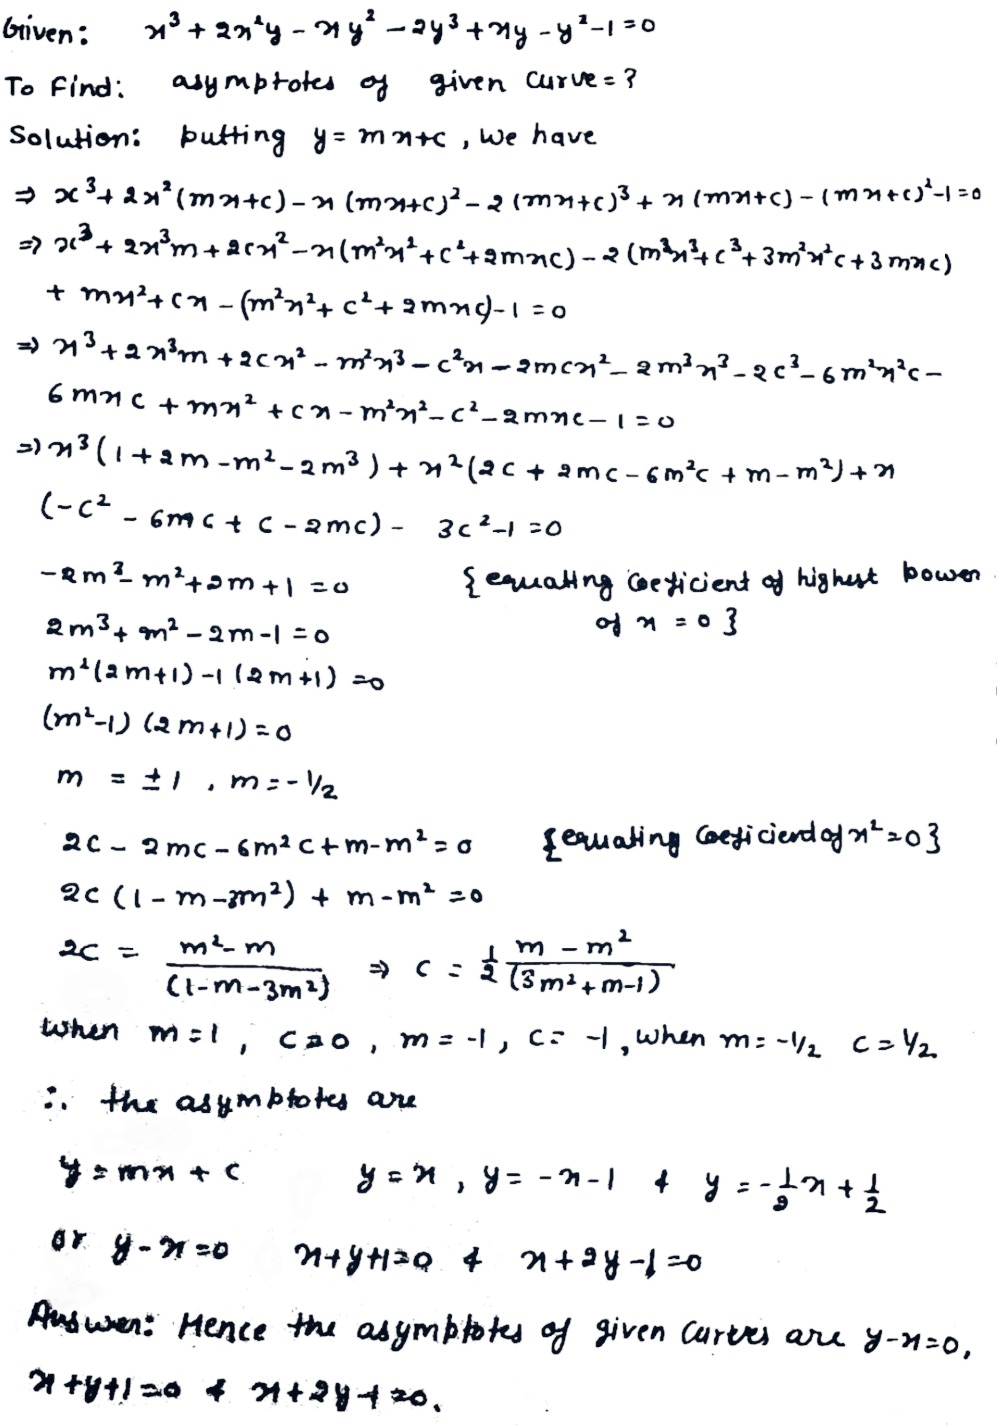 Given: x³ + 2x²y - xy² - 2y³ + xy - y² - 1 = 0
To Find: asymptotes of given curve = ?
Solution: putting y = mx+c, we have
⇒ x³ + 2x²(mx+c) - x(mx+c)² - 2(mx+c)³ + x(mx+c) - (mx+c)² - 1 = 0
⇒ x³ + 2x³m + 2cx² - x(m²x² + c² + 2mxc) - 2(m³x³ + c³ + 3m²x²c + 3mxc)
+ mx² + cx - (m²x² + c² + 2mxc) - 1 = 0
⇒ x³ + 2x³m + 2cx² - m²x³ - c²x - 2mcx² - 2m³x³ - 2c³ - 6m²x²c -
6mxc + mx² + cx - m²x² - c² - 2mxc - 1 = 0
⇒ x³(1 + 2m - m² - 2m³) + x²(2c + 2mc - 6m²c + m - m²) + x
(-c² - 6mc + c - 2mc) - 3c² - 1 = 0
-2m³ - m² + 2m + 1 = 0 {equating coeficient of highest power
2m³ + m² - 2m - 1 = 0 of x = 0}
m²(2m+1) - 1(2m+1) = 0
(m²-1)(2m+1) = 0
m = ±1, m = -1/2
2c - 2mc - 6m²c + m - m² = 0 {equating coeficient of x² = 0}
2c(1 - m - 3m²) + m - m² = 0
2c = (m² - m)/(1-m-3m²) ⇒ c = 1/2 (m - m²)/(3m²+m-1)
when m = 1, c = 0, m = -1, c = -1, when m = -1/2 c = 1/2
∴ the asymptotes are
y = mx + c y = x, y = -x-1 & y = -1/2 x + 1/2
or y - x = 0 x+y+1 = 0 & x+2y-1 = 0
Answer: Hence the asymptotes of given curves are y-x=0,
x+y+1=0 & x+2y-1=0.